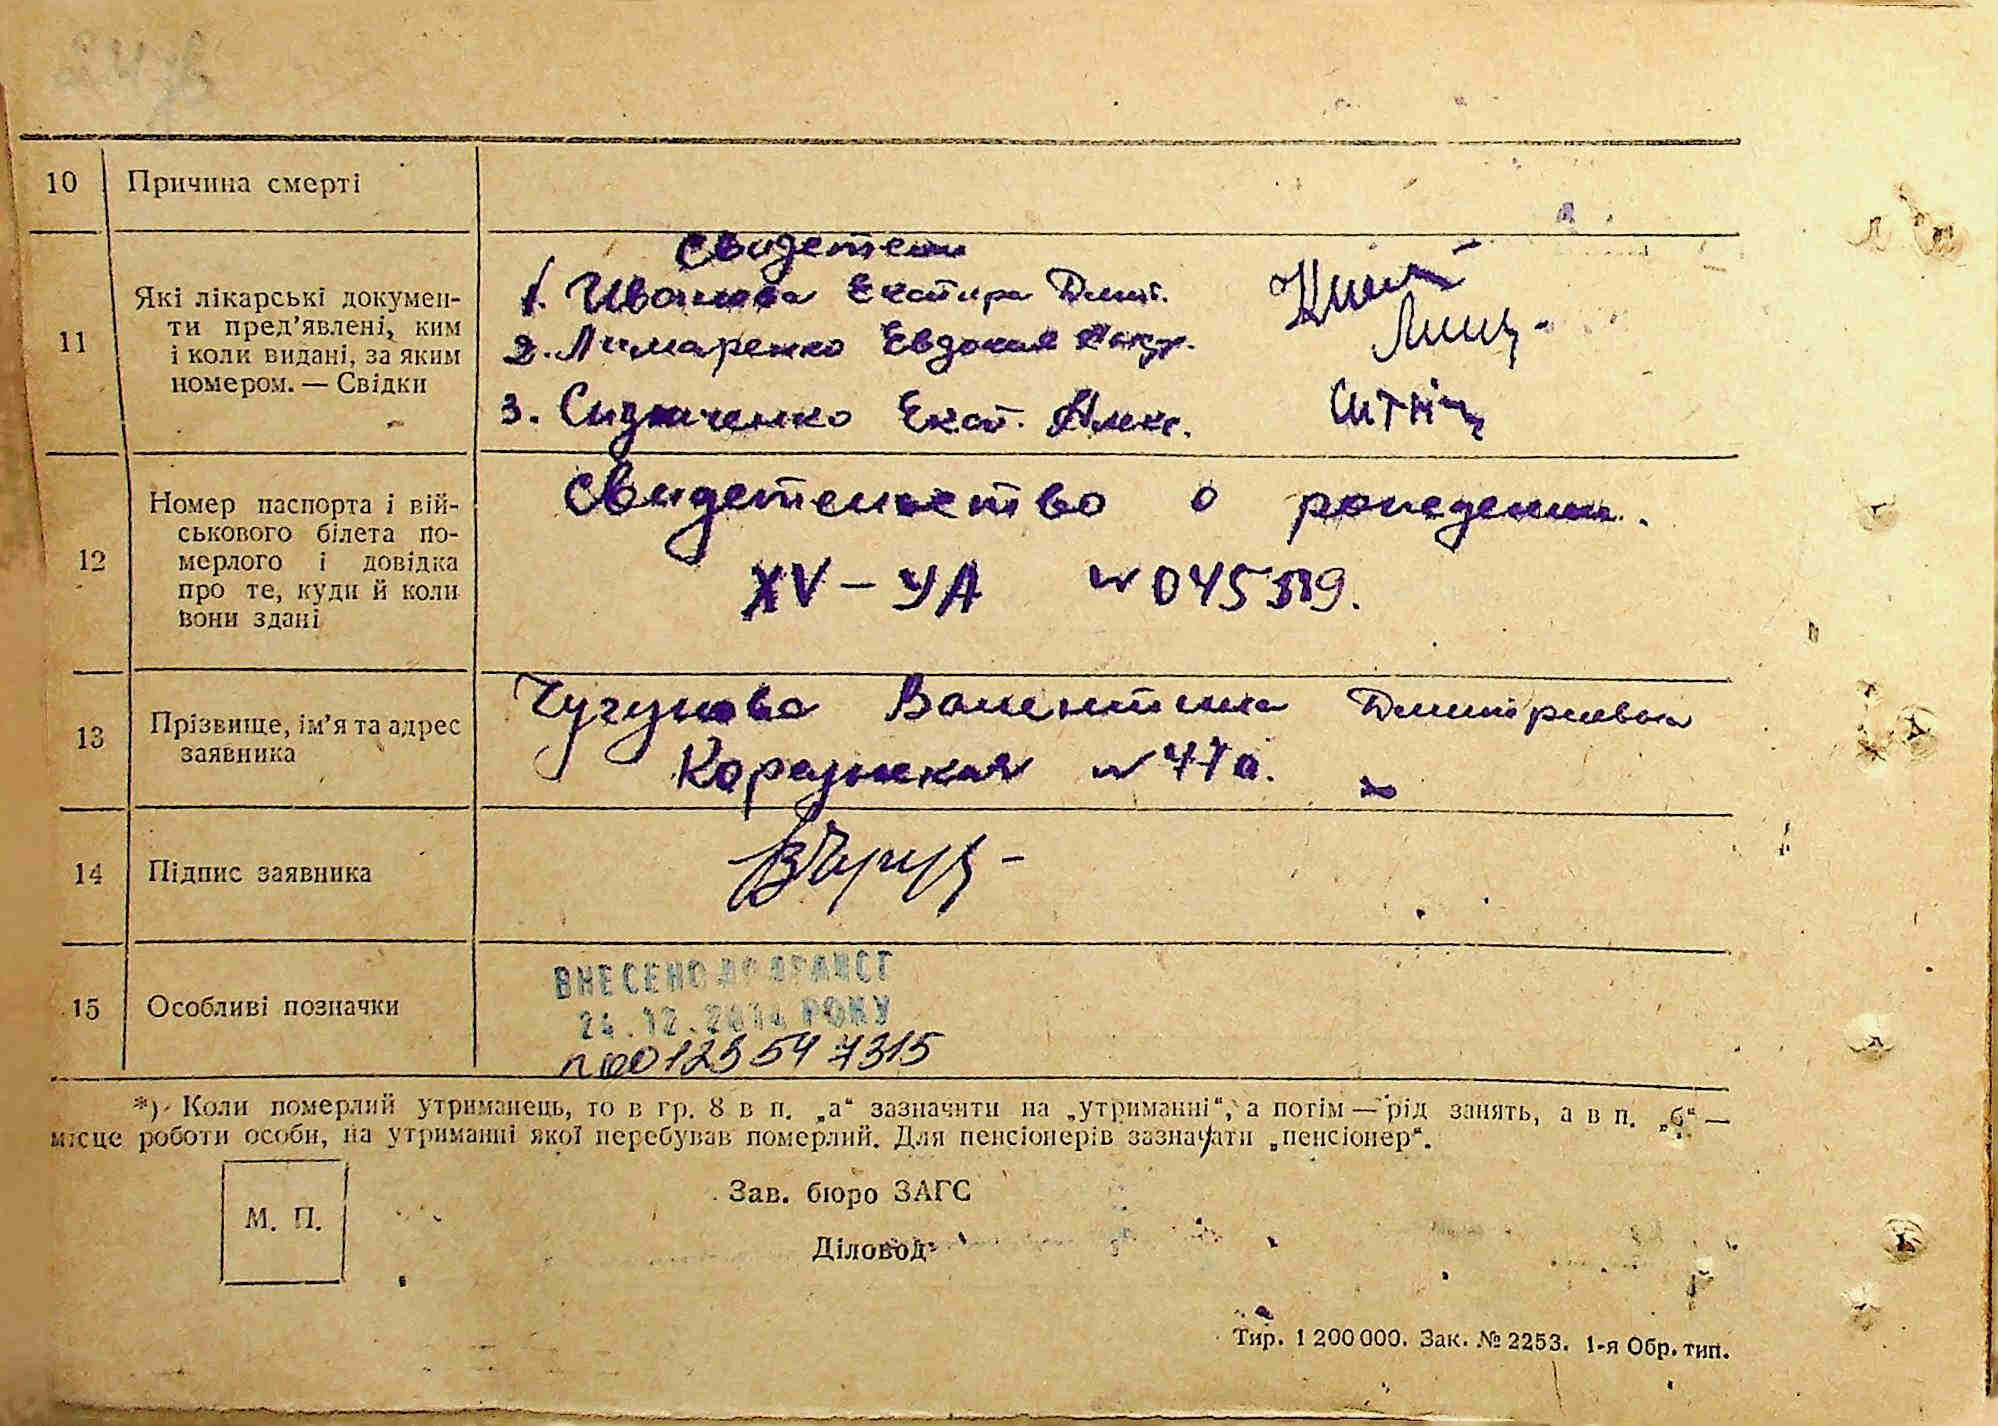 10 Причина смерті
Свидетели
11 Які лікарські докумен-
ти пред’явлені, ким
і коли видані, за яким
номером. — Свідки
1. Иванова Екатира Дмит.
2. Лимаренко Евдокия
3. Екат. Алекс.
12 Номер паспорта і вій-
ськового білета по-
мерлого і довідка
про те, куди й коли
вони здані
Свидетельство о рождении.
XV – УА № 045319.
13 Прізвище, ім’я та адрес
заявника
Чугунова Валентина Дмитриевна
№ 47а.
14 Підпис заявника
15 Особливі позначки
ВНЕСЕНО ДО ДРАЦСГ
24.12.2014 РОКУ
00123547315
*) Коли померлий утриманець, то в гр. 8 в п. „а“ зазначити на „утриманні“, а потім — рід занять, а в п. „б“ —
місце роботи особи, на утриманні якої перебував померлий. Для пенсіонерів зазначати „пенсіонер“.
М. П.
Зав. бюро ЗАГС
Діловод
Тир. 1 200 000. Зак. № 2253. 1-я Обр. тип.